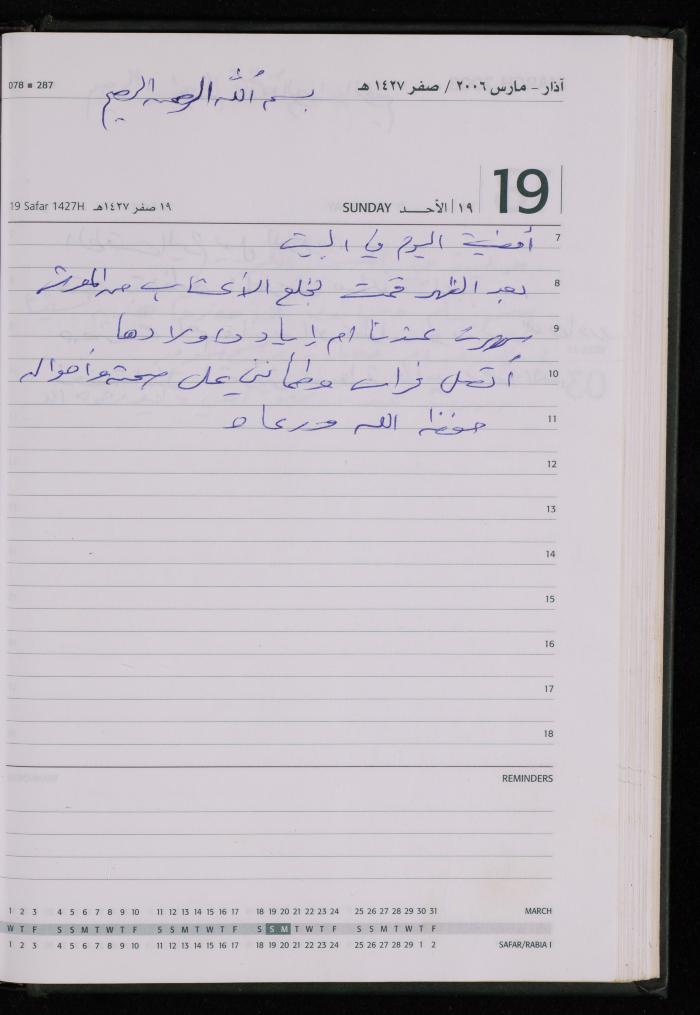 078 ▪ 287
آذار – مارس ٢٠٠٦ / صفر ١٤٢٧ هـ
بسم الله الرحمن الرحيم
19
19 Safar 1427H ١٩ صفر ١٤٢٧هـ
SUNDAY الأحـــد | ١٩
7 أمضيت اليوم في البيت
8 بعد الظهر قمت بخلع الأعشاب من
9 سهرت عندنا ام إياد و اولادها
10 أتصل فراس وطمأنني على صحته وأحواله
11 حفظه الله ورعاه
12
13
14
15
16
17
18
REMINDERS
1 2 3 4 5 6 7 8 9 10 11 12 13 14 15 16 17 18 19 20 21 22 23 24 25 26 27 28 29 30 31 MARCH
W T F S S M T W T F S S M T W T F S S M T W T F S S M T W T F
1 2 3 4 5 6 7 8 9 10 11 12 13 14 15 16 17 18 19 20 21 22 23 24 25 26 27 28 29 1 2 SAFAR/RABIA I